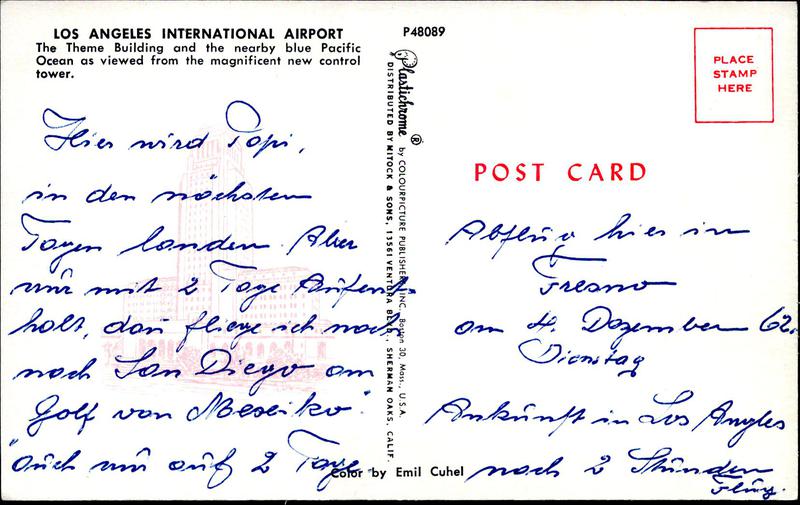 LOS ANGELES INTERNATIONAL AIRPORT
The Theme Building and the nearby blue Pacific
Ocean as viewed from the magnificent new control
tower.
Hier wird Papi,
in den nächsten
Tagen landen. Aber
nur mit 2 Tage Aufent-
halt, dan fliege ich noch
nach San Diego am
Golf von Mexeiko.
auch nur auf 2 Tage
Color by Emil Cuhel
P48089
Plastichrome ® by COLOURPICTURE PUBLISHERS, INC., Boston 30, Mass., U.S.A.
DISTRIBUTED BY MITOCK & SONS, 13561 VENTURA BLVD., SHERMAN OAKS, CALIF.
PLACE
STAMP
HERE
POST CARD
Abflug hier in
Fresno
am 4. Dezember 62.
Dienstag
Ankunft in Los Angles
nach 2 Stunden
Flug.